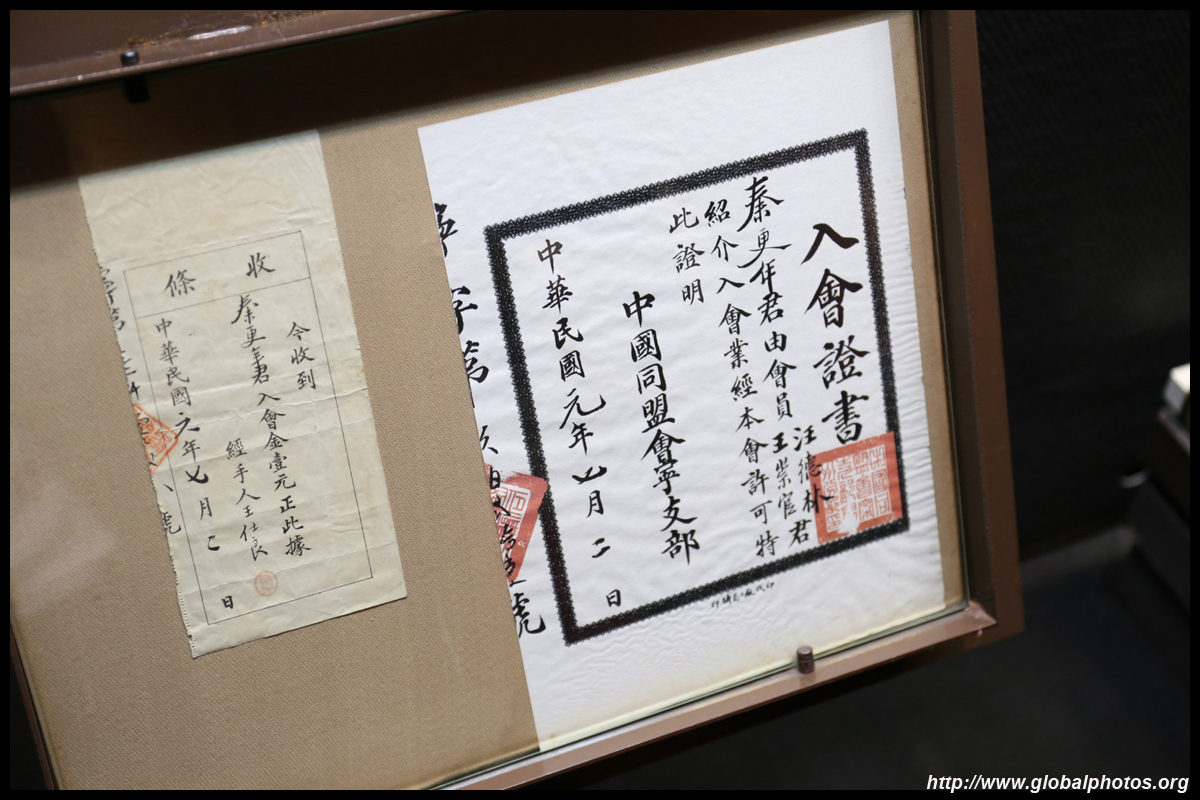 入會證書
秦更年君由會員汪德林王崇官君
紹介入會業經本會許可特
此證明
中國同盟會寧支部
中華民國元年七月二日
字第
號
收條
今收到
秦更年君入會金壹元正此據
經手人王仕良
中華民國元年七月二日
http://www.globalphotos.org